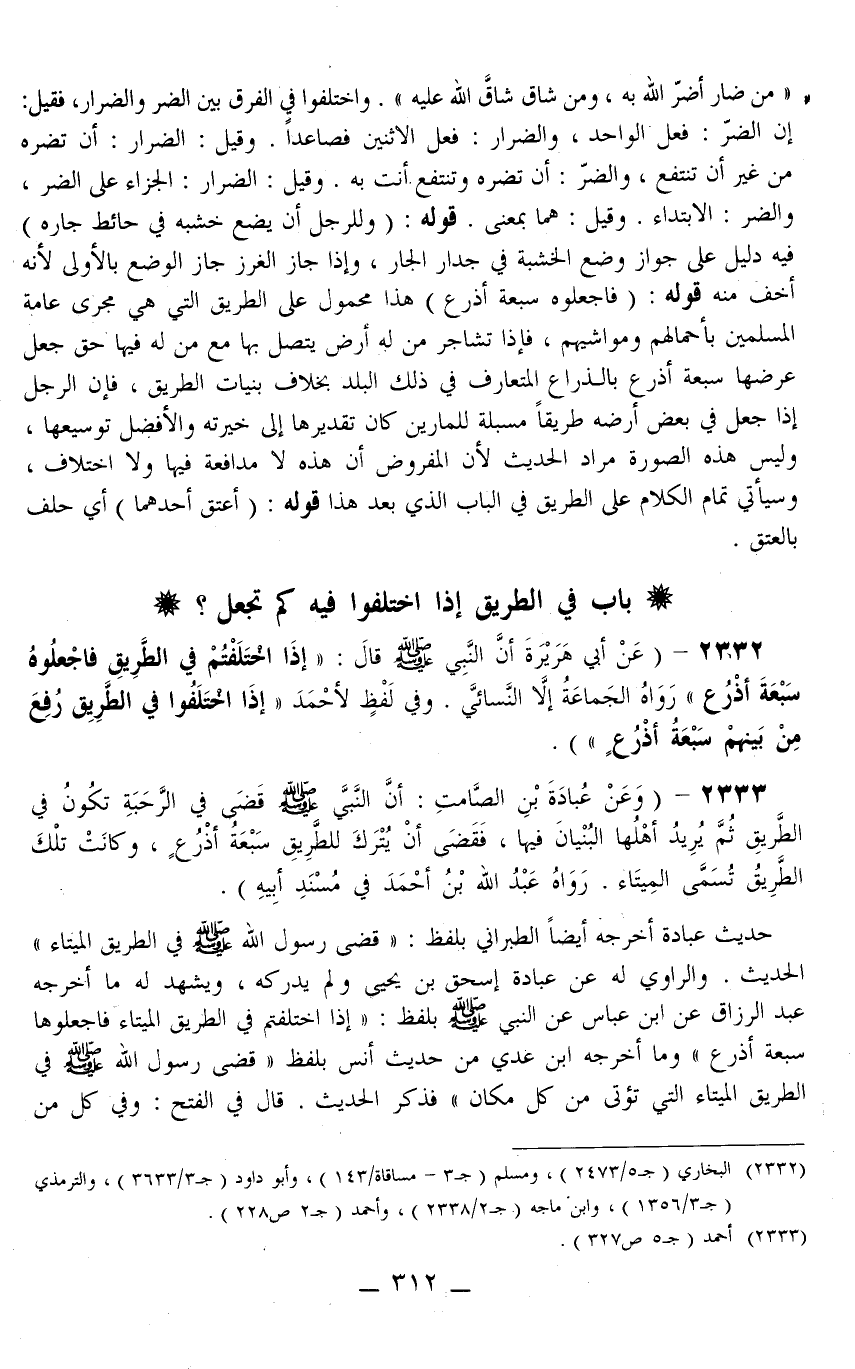 « من ضار أضرّ الله به ، ومن شاق شاقَّ الله عليه » . واختلفوا في الفرق بين الضر والضرار، فقيل:
إن الضرّ : فعل الواحد ، والضرار : فعل الاثنين فصاعداً . وقيل : الضرار : أن تضره
من غير أن تنتفع ، والضرّ : أن تضره وتنتفع أنت به . وقيل : الضرار : الجزاء على الضر ،
والضر : الابتداء . وقيل : هما بمعنى . قوله : ( وللرجل أن يضع خشبه في حائط جاره )
فيه دليل على جواز وضع الخشبة في جدار الجار ، وإذا جاز الغرز جاز الوضع بالأولى لأنه
أخف منه قوله : ( فاجعلوه سبعة أذرع ) هذا محمول على الطريق التي هي مجرى عامة
المسلمين بأحمالهم ومواشيهم ، فإذا تشاجر من له أرض يتصل بها مع من له فيها حق جعل
عرضها سبعة أذرع بالذراع المتعارف في ذلك البلد بخلاف بنيات الطريق ، فإن الرجل
إذا جعل في بعض أرضه طريقاً مسبلة للمارين كان تقديرها إلى خيرته والأفضل توسيعها ،
وليس هذه الصورة مراد الحديث لأن المفروض أن هذه لا مدافعة فيها ولا اختلاف ،
وسيأتي تمام الكلام على الطريق في الباب الذي بعد هذا قوله : ( أعتق أحدهما ) أي حلف
بالعتق .
باب في الطريق إذا اختلفوا فيه كم تجعل ؟
٢٣٣٢ – ( عَنْ أبي هَرَيْرَةَ أنَّ النَّبِي ﷺ قالَ : « إذَا اخْتَلَفْتُمْ في الطَّرِيقِ فاجْعلُوهُ
سَبْعَةَ أذْرُع » رَوَاهُ الجَماعَةُ إلَّا النَّسائيَّ . وفي لَفْظٍ لأحْمَدَ « إذَا اخْتَلَفُوا في الطَّرِيق رُفِعَ
مِنْ بَينهِمْ سَبْعَةُ أذْرُعٍ » ) .
٢٣٣٣ – ( وَعَنْ عُبادَةَ بْنِ الصَّامتِ : أنَّ النَّبيَّ ﷺ قَضَى في الرَّحَبَةِ تكُونُ في
الطَّرِيق ثُمَّ يُرِيدُ أهْلُها البُنْيانَ فيها ، فَقَضَى أنْ يُتْرَكَ للطَّرِيقِ سَبْعَةُ أذْرُعٍ ، وكانَتْ تلْكَ
الطَّرِيقُ تُسَمَّى المِيتَاء . رَوَاهُ عَبْدُ الله بْنُ أحْمَدَ في مُسْنَدِ أبِيهِ ) .
حديث عبادة أخرجه أيضاً الطبراني بلفظ : « قضى رسول الله ﷺ في الطريق الميتاء »
الحديث . والراوي له عن عبادة إسحق بن يحيى ولم يدركه ، ويشهد له ما أخرجه
عبد الرزاق عن ابن عباس عن النبي ﷺ بلفظ : « إذا اختلفتم في الطريق الميتاء فاجعلوها
سبعة أذرع » وما أخرجه ابن عدي من حديث أنس بلفظ « قضى رسول الله ﷺ في
الطريق الميتاء التي تؤتى من كل مكان » فذكر الحديث . قال في الفتح : وفي كل من
(٢٣٣٢) البخاري ( جـ٢٤٧٣/٥ ) ، ومسلم ( جـ٣ – مساقاة/١٤٣ ) ، وأبو داود ( جـ٣٦٣٣/٣ ) ، والترمذي
( جـ١٣٥٦/٣ ) ، وابن ماجه ( جـ٢٣٣٨/٢ ) ، وأحمد ( جـ٢ ص٢٢٨ ) .
(٢٣٣٣) أحمد ( جـ٥ ص٣٢٧ ) .
– ٣١٢ –